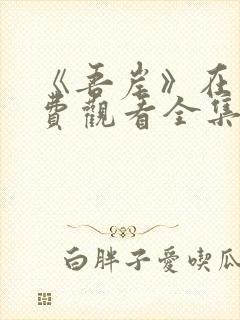 《吾岸》在
費觀看全集
白胖子愛喫瓜